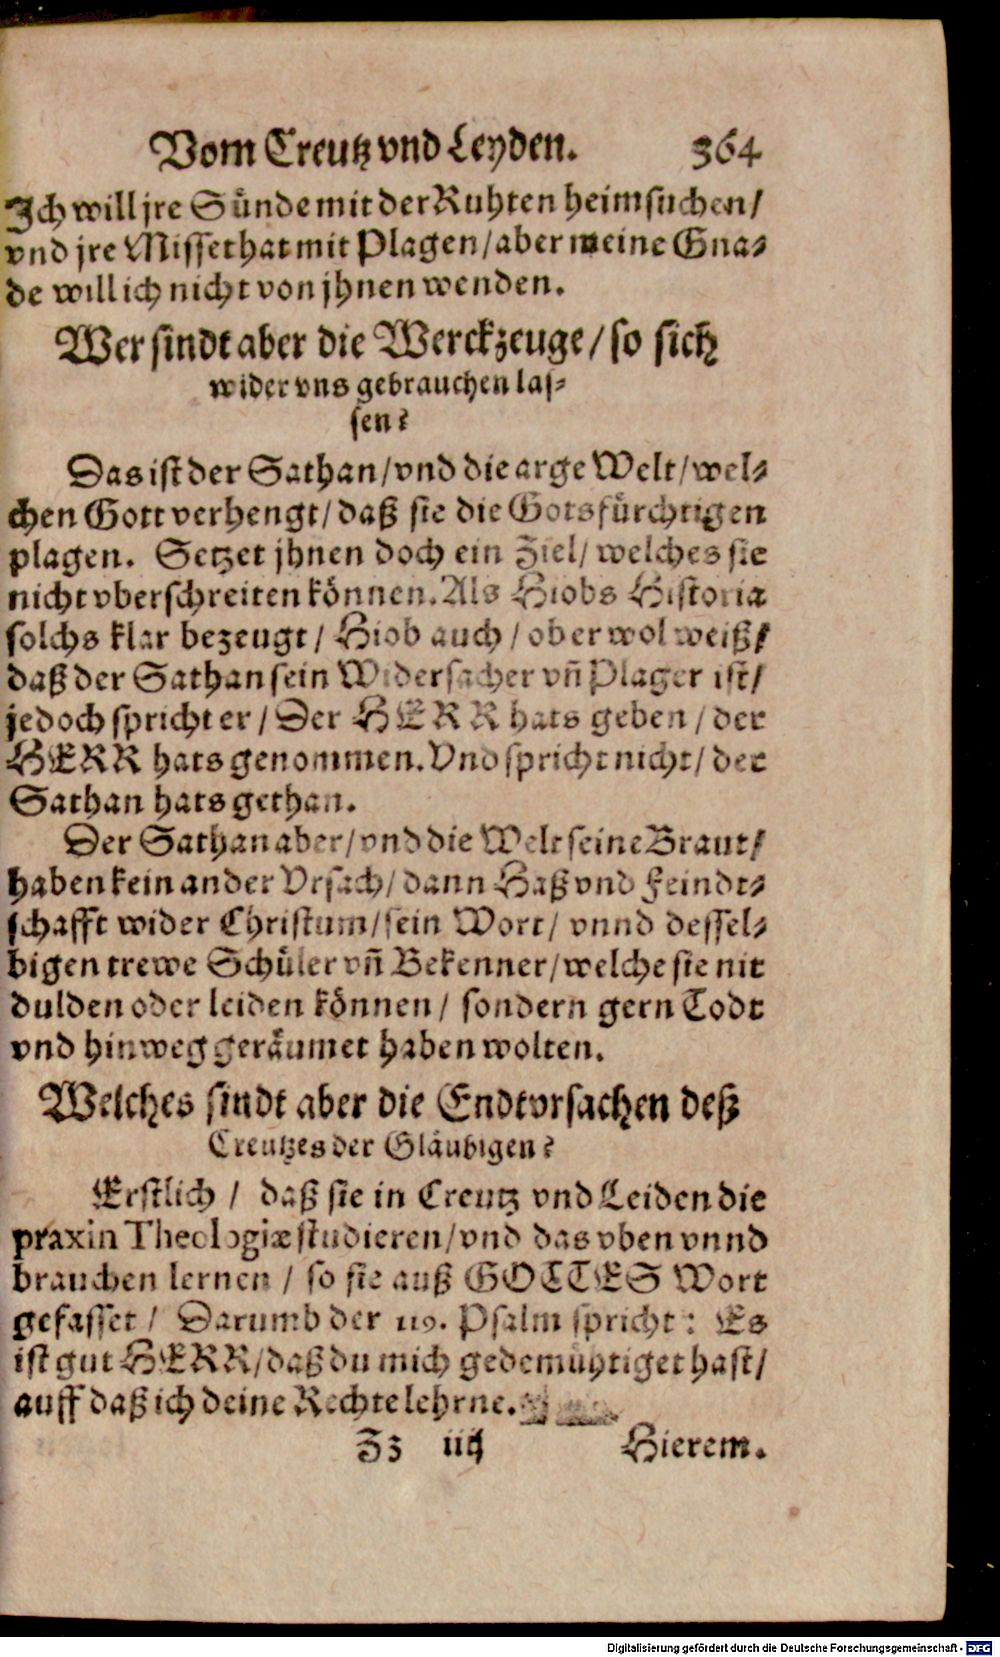 Vom Creutz vnd Leyden. 364
Ich will jre Sünde mit der Ruhten heimsuchen/
vnd jre Missethat mit Plagen/ aber meine Gna-
de will ich nicht von jhnen wenden.
Wer sindt aber die Werckzeuge/ so sich
wider vns gebrauchen las-
sen?
Das ist der Sathan/ vnd die arge Welt/ wel-
chen Gott verhengt/ daß sie die Gotsfürchtigen
plagen. Setzet jhnen doch ein Ziel/ welches sie
nicht vberschreiten können. Als Hiobs Historia
solchs klar bezeugt/ Hiob auch/ ob er wol weiß/
daß der Sathan sein Widersacher vñ Plager ist/
jedoch spricht er/ Der HERR hats geben/ der
HERR hats genommen. Vnd spricht nicht/ der
Sathan hats gethan.
Der Sathan aber/ vnd die Welt seine Braut/
haben kein ander Vrsach/ dann Haß vnd Feindt-
schafft wider Christum/ sein Wort/ vnnd dessel-
bigen trewe Schüler vñ Bekenner/ welche sie nit
dulden oder leiden können/ sondern gern Todt
vnd hinweg geräumet haben wolten.
Welches sindt aber die Endtvrsachen deß
Creutzes der Gläubigen?
Erstlich/ daß sie in Creutz vnd Leiden die
praxin Theologiæ studieren/ vnd das vben vnnd
brauchen lernen/ so sie auß GOTTES Wort
gefasset/ Darumb der 119. Psalm spricht: Es
ist gut HERR/ daß du mich gedemühtiget hast/
auff daß ich deine Rechte lehrne.
Zz iiij Hierem.
Digitalisierung gefördert durch die Deutsche Forschungsgemeinschaft - DFG